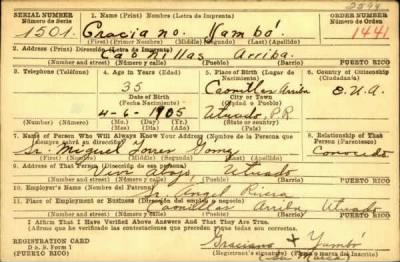 SERIAL NUMBER
Número de Serie
1. Name (Print) Nombre (Letra de Imprenta)
ORDER NUMBER
Número de Orden
1501.
Graciano. Yambó.
1441
(First) (Primer Nombre) (Middle) (Segundo) (Last) (Apellido)
2. Address (Print) Dirección (Letra de Imprenta)
Caonillas Arriba.
Number and street (Número y calle) PUERTO RICO
3. Telephone (Teléfono)
4. Age in Years (Edad)
5. Place of Birth (Lugar de Nacimiento)
6. Country of Citizenship (Ciudadanía)
35
Caonillas Arriba
E.U.A.
Date of Birth
(Fecha Nacimiento)
City or Town
(Ciudad o Pueblo)
4-6-1905
Utuado, P.R
(Number) (Número)
(Mo.) (Mes) (Day) (Día) (Yr.) (Año)
(State or country)
7. Name of Person Who Will Always Know Your Address (Nombre de la Persona que siempre sabrá su dirección)
8. Relationship of That Person (Parentesco)
Sr. Miguel Torres Gomez
Conocido
(First) (Primer Nombre) (Middle) (Segundo) (Last) (Apellido)
9. Address of That Person (Dirección de esa persona)
Viví abajo, Utuado
Number and street (Número y calle) PUERTO RICO
10. Employer's Name (Nombre del Patrono)
Sr. Angel Rivera
11. Place of Employment or Business (Dirección del empleo o negocio)
Caonillas Arriba Utuado
Number and street (Número y calle) PUERTO RICO
I Affirm That I Have Verified Above Answers and That They Are True.
(Afirmo que he verificado las contestaciones que preceden y que todas son correctas).
REGISTRATION CARD
D. S. S. Form 1
(PUERTO RICO)
Graciano X Yambó
(Registrant's signature)